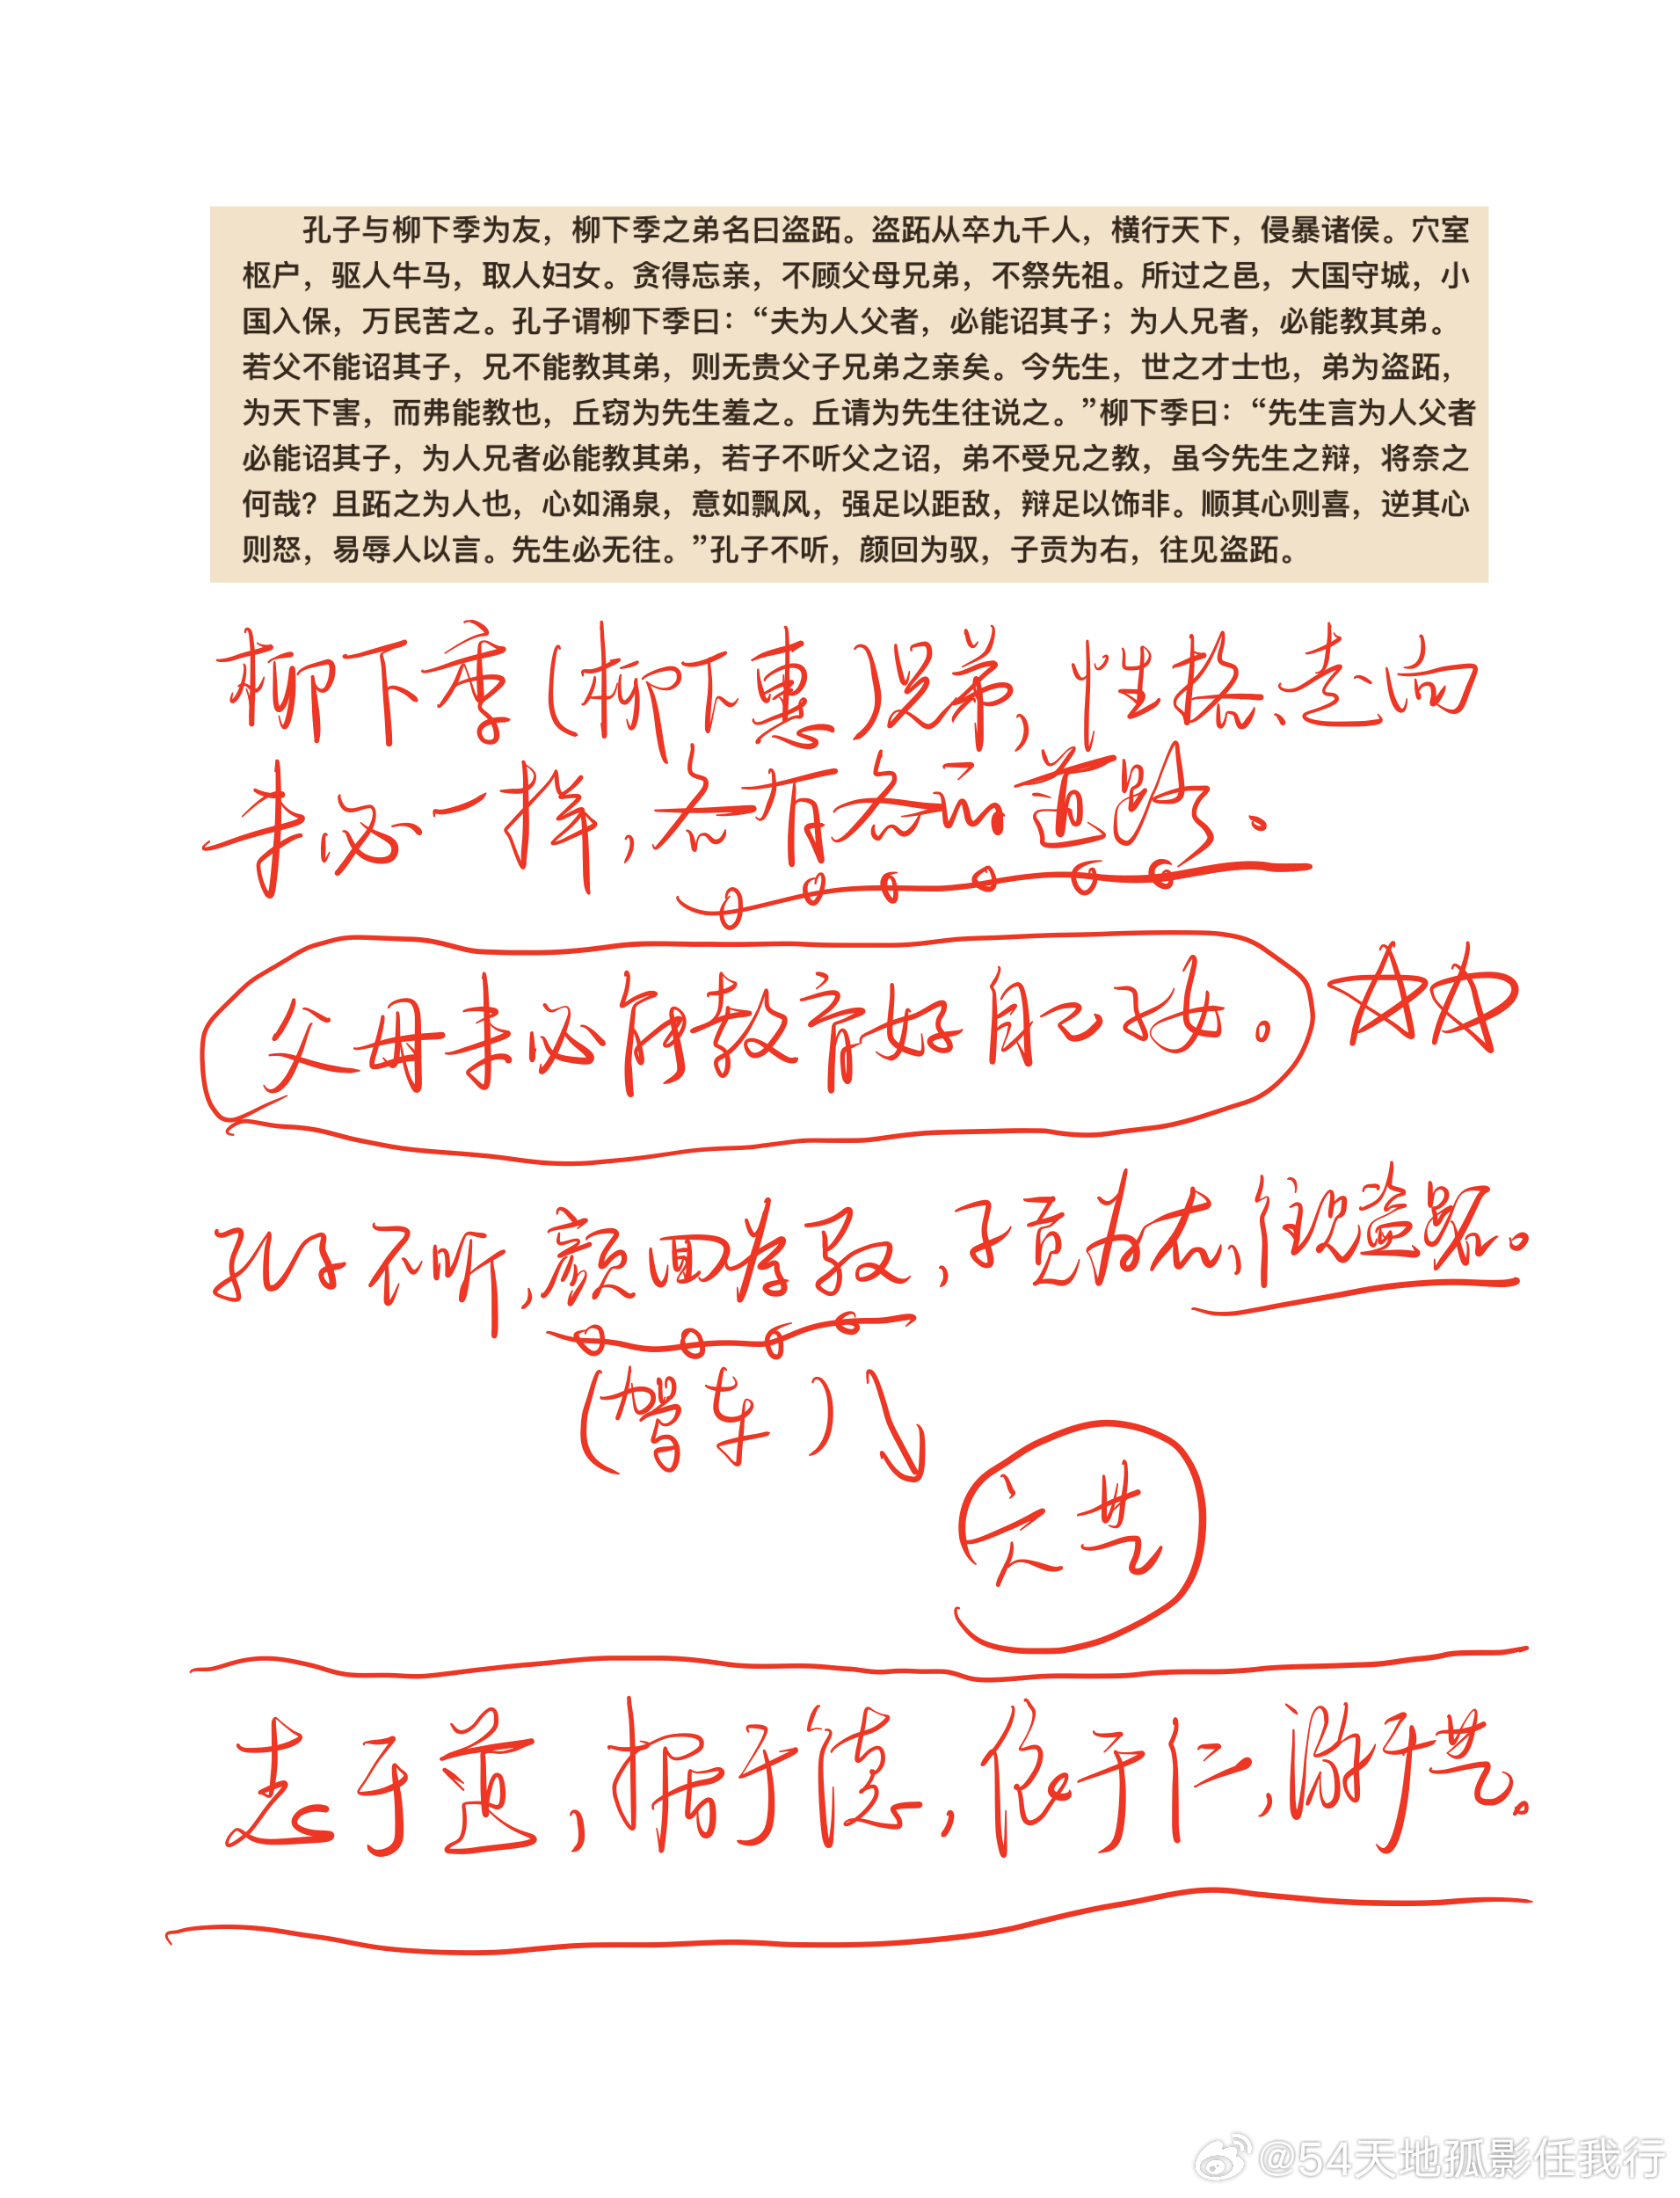 孔子与柳下季为友，柳下季之弟名曰盗跖。盗跖从卒九千人，横行天下，侵暴诸侯。穴室
枢户，驱人牛马，取人妇女。贪得忘亲，不顾父母兄弟，不祭先祖。所过之邑，大国守城，小
国入保，万民苦之。孔子谓柳下季曰：“夫为人父者，必能诏其子；为人兄者，必能教其弟。
若父不能诏其子，兄不能教其弟，则无贵父子兄弟之亲矣。今先生，世之才士也，弟为盗跖，
为天下害，而弗能教也，丘窃为先生羞之。丘请为先生往说之。”柳下季曰：“先生言为人父者
必能诏其子，为人兄者必能教其弟，若子不听父之诏，弟不受兄之教，虽今先生之辩，将奈之
何哉？且跖之为人也，心如涌泉，意如飘风，强足以距敌，辩足以饰非。顺其心则喜，逆其心
则怒，易辱人以言。先生必无往。”孔子不听，颜回为驭，子贡为右，往见盗跖。
柳下季（柳下惠）兄弟，性格、走向
未必一样，各有各的道路、
父母未必能教育好自己孩。
孔子不听，颜回为驭，子贡为右，往见盗跖。
（驾车）
六艺
志于道，据于德，依于仁，游于艺。
@54天地孤影任我行